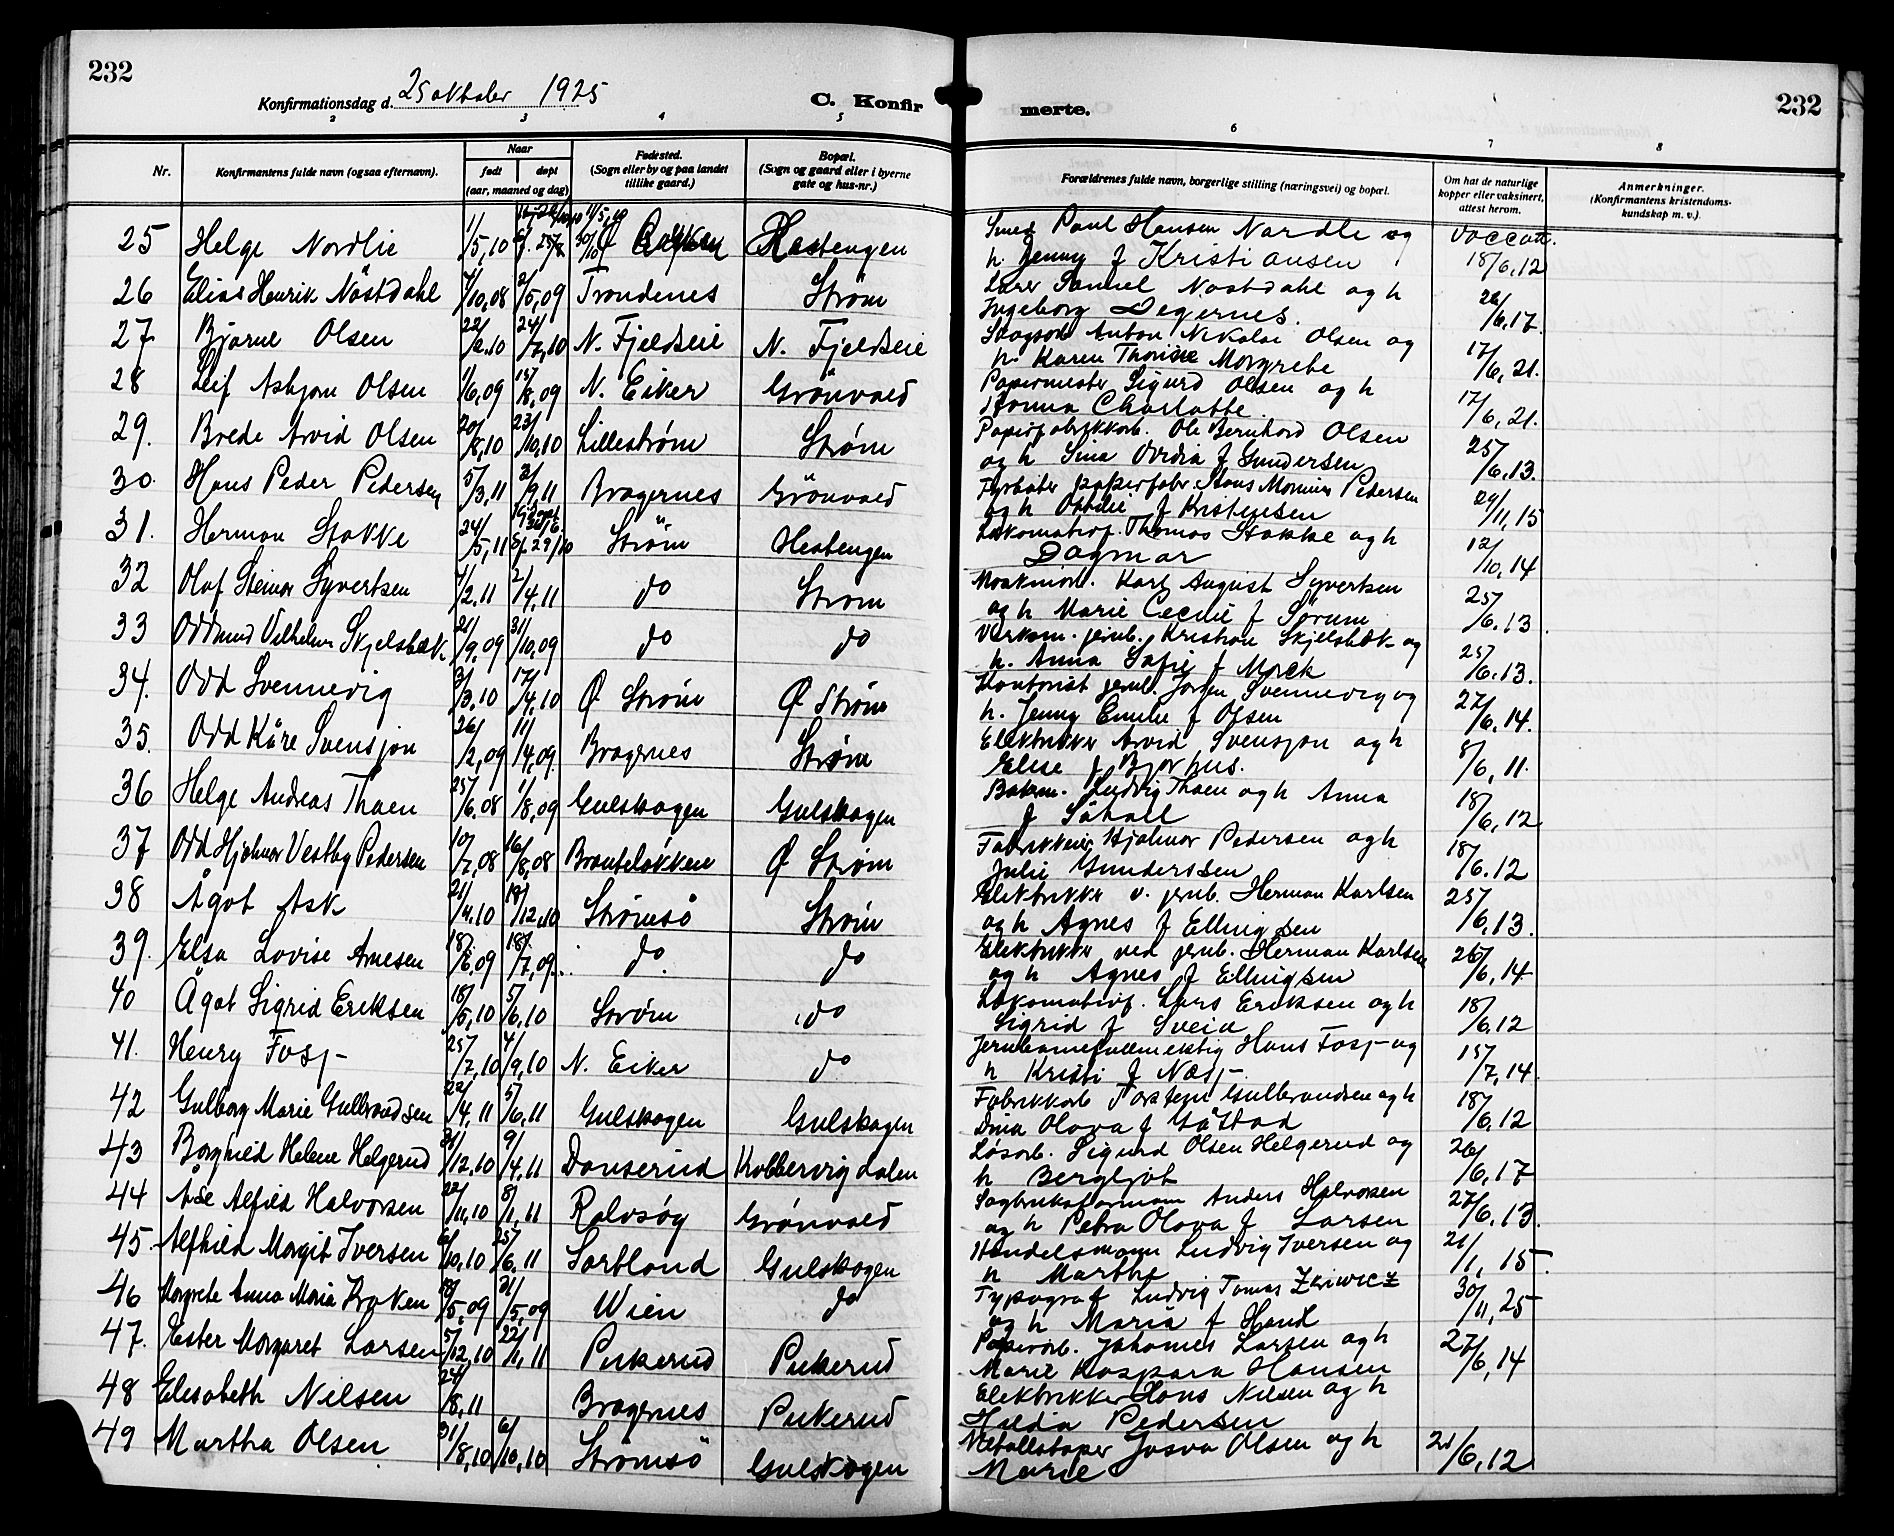 232
Konfirmationsdag d. 25 oktober 1925
C. Konfir
merte.
232
2 3 4 5 6 7 8
Nr.
Konfirmantens fulde navn (ogsaa efternavn).
Naar
født døpt
(aar, maaned og dag)
Fødested.
(Sogn eller by og paa landet
tillike gaard.)
Bopæl.
(Sogn og gaard eller i byerne
gate og hus-nr.)
Forældrenes fulde navn, borgerlige stilling (næringsvei) og bopæl.
Om hat de naturlige
kopper eller vaksinert,
attest herom.
Anmerkninger.
(Konfirmantens kristendoms-
kundskap m. v.).
25 Helge Nordlie 1/5,10 Hestengen Smed Paul Hansen Nordli og vaccatt.
h. Jenny f Kristiansen 18/6,12
26 Elias Henrik Nöstdahl 4/10,08 2/5,09 Trondenes Strøm Lærer Samuel Nostdahl og h
Ingeborg Degernes. 26/6,17
27 Bjarne Olsen 22/2.10 24/7,10 N. Fjeldseie N. Fjeldseie Skogsarb Anton Nikolai Olsen og
h. Karen Thorine Margrethe 17/6,21.
28 Leif Asbjørn Olsen 1/6,09 15/8,09 N. Eiker Grönvold Papirmester Sigurd Olsen og h
Hanna Charlotte. 17/6,21.
29. Brede Arvid Olsen 20/8,10 23/10,10 Lillestrøm Strøm Papirfabrikkarb. Ole Bernhard Olsen
og h Sina Ovidia f Gundersen 25/6,13.
30. Hans Peder Pedersen 5/3,11 3/9,11 Bragernes Grönvold Fyrbøter papirfabr. Hans Pedersen
og h Othilie f Kristensen 29/11,15
31. Herman Stokke 24/5,11 Ström Hestengen Lokomotivf. Thomas Stokke og h
Dagmar 12/10,14
32 Olaf Steinar Syvertsen 4/2.11 2/4.11 do Strøm Maskinarb. Karl August Syvertsen
og h Marie Cecilie f Sörum 25/6.13
33 Oddmund Vilhelm Skjelsbæk 21/9,09 31/10,09 do do Verksm. jernb. Kristian Skjelsbæk og
h. Anna Sofie f Moek 25/6.13.
34. Odd Svennevig 3/3.10 17/4,10 Ø Strøm Ø Strøm Kontorist jernb. Jørgen Svennevig og
h. Jenny Emilie f Olsen 27/6.14.
35. Odd Kåre Svensjon 26/2,09 11/4,09 Bragernes Strøm Elektriker Arvid Svensjon og h
Elise f Bjørhus. 8/6,11.
36 Helge Andreas Thoen 25/6.08 1/8,09 Gulskogen Gulskogen Ludvig Thoen og h Anna
18/6,12
37 Odd Hjalmar Vestby Pedersen 10/7,08 16/8,08 Brønteløkken Ø Strøm Hjalmar Pedersen og h
Julie Gunderssen 18/6.12
38 Ågot Ask 21/4.10 18/12,10 Strømsö Strøm Elektrikker v. jernb. Herman Karlsen
og h Agnes f Ellingsen 25/6,13.
39. Elsa Lovise Arnesen 18/6.09 18/7,09. do do Elektrikker ved jernb. Herman Karlsen
og h Agnes f Ellingsen 26/6,14
40 Ågot Sigrid Eriksen 18/5,10 5/6,10 Strøm do Lokomotivf. Lars Eriksen og h
Sigrid f Sveia 18/6,12
41. Henry Foss 25/7,10 4/9,10 N. Eiker do Jernbanefullmektig Hans Foss og
h Kristi f Næss 15/7,14.
42 Gulborg Marie Gullbrandsen 22/4,11 5/6,11 Gulskogen Gulskogen Fabrikkarb Torstein Gulbrandsen og h
Dina Olava f 18/6,12
43 Borghild Helene Helgerud 31/12,10 9/4,11 Danserud Kobbervig dalen Løsarb. Sigurd Olsen Helgerud og
h Bergljot 26/6,17
44 Åse Alfild Halvorsen 22/11,10 8/1,11 Rolvsöy Grönvold Sagbruksformann Anders Halvorsen
og h Petra Olava f Larsen 27/6,13.
45. Alfhild Margit Iversen 6/10,10 25/6.11 Sortland Gulskogen Handelsmann Ludvig Iversen og
h Marthe 21/1, 15.
46 Margrete Anna Maria 5,09 31/5,09 Wien do Typograf Ludvig Tomas Zkiwicz
og h Maria f Hand 30/11,25
47. Ester Margaret Larsen 5/12,10 22/1,11 Pukerud Pukerud Papirarb. Johannes Larsen og h
Marie Kaspara Hansen 27/6,14
48 Elisabeth Nilsen 24/8,11 Bragernes Pukerud Elektrikker Hans Nilsen og h
Hulda Pedersen
49 Martha Olsen 31/8,10 6/10,10 Strömsö Gulskogen Metallstøper Josva Olsen og h
Marie 21/6,12